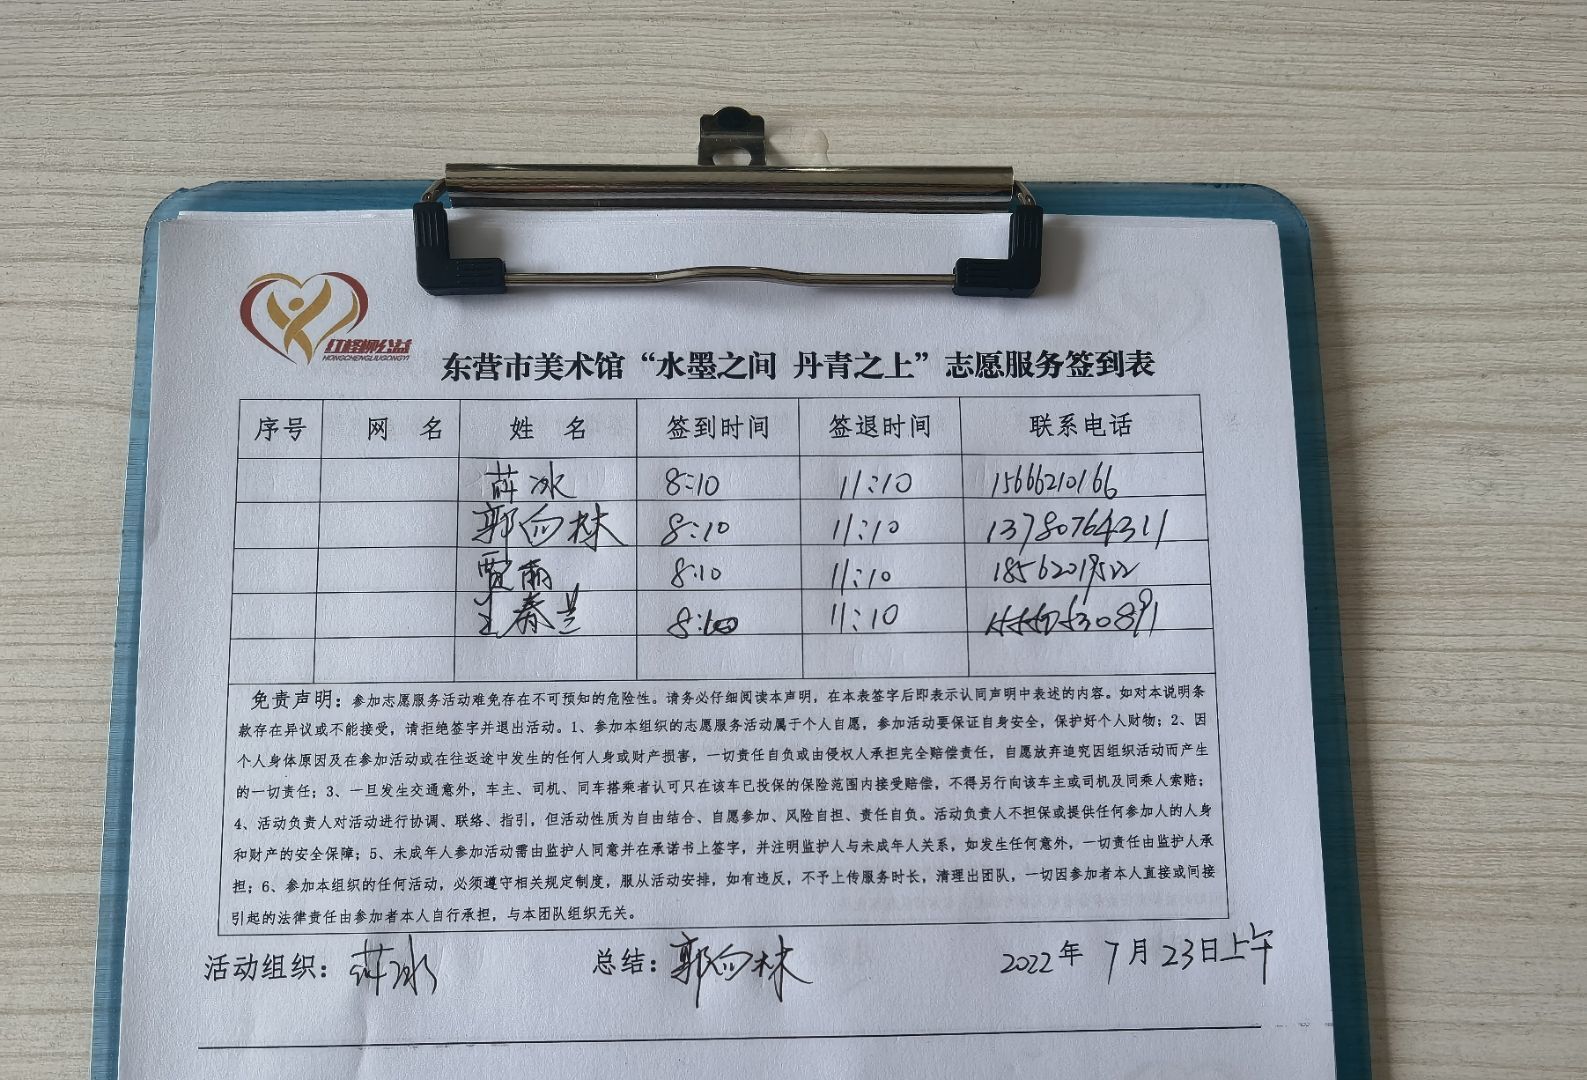 红柽柳公益
HONGCHENGLIUGONGYI
东营市美术馆“水墨之间 丹青之上”志愿服务签到表
序号 网 名 姓 名 签到时间 签退时间 联系电话
薛冰 8:10 11:10 15666210166
郭向林 8:10 11:10 13780764311
贾丽 8:10 11:10 18562019522
王春兰 11:10
免责声明：参加志愿服务活动难免存在不可预知的危险性。请务必仔细阅读本声明，在本表签字后即表示认同声明中表述的内容。如对本说明条
款存在异议或不能接受，请拒绝签字并退出活动。1、参加本组织的志愿服务活动属于个人自愿，参加活动要保证自身安全，保护好个人财物；2、因
个人身体原因及在参加活动或在往返途中发生的任何人身或财产损害，一切责任自负或由侵权人承担完全赔偿责任，自愿放弃追究因组织活动而产生
的一切责任；3、一旦发生交通意外，车主、司机、同车搭乘者认可只在该车已投保的保险范围内接受赔偿，不得另行向该车主或司机及同乘人索赔；
4、活动负责人对活动进行协调、联络、指引，但活动性质为自由结合、自愿参加、风险自担、责任自负。活动负责人不担保或提供任何参加人的人身
和财产的安全保障；5、未成年人参加活动需由监护人同意并在承诺书上签字，并注明监护人与未成年人关系，如发生任何意外，一切责任由监护人承
担；6、参加本组织的任何活动，必须遵守相关规定制度，服从活动安排，如有违反，不予上传服务时长，清理出团队，一切因参加者本人直接或间接
引起的法律责任由参加者本人自行承担，与本团队组织无关。
活动组织：薛冰 总结：郭向林 2022年 7月23日上午